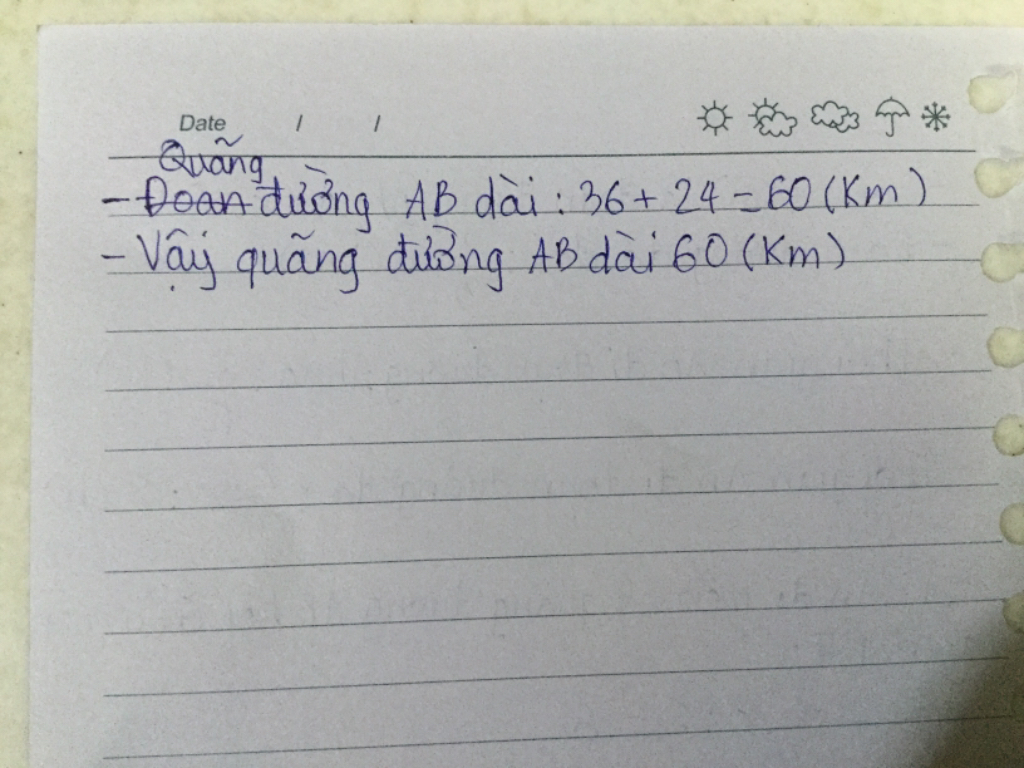 Date / /
Quãng
- Đoan đường AB dài : 36 + 24 = 60 (Km)
- Vậy quãng đường AB dài 60 (Km)